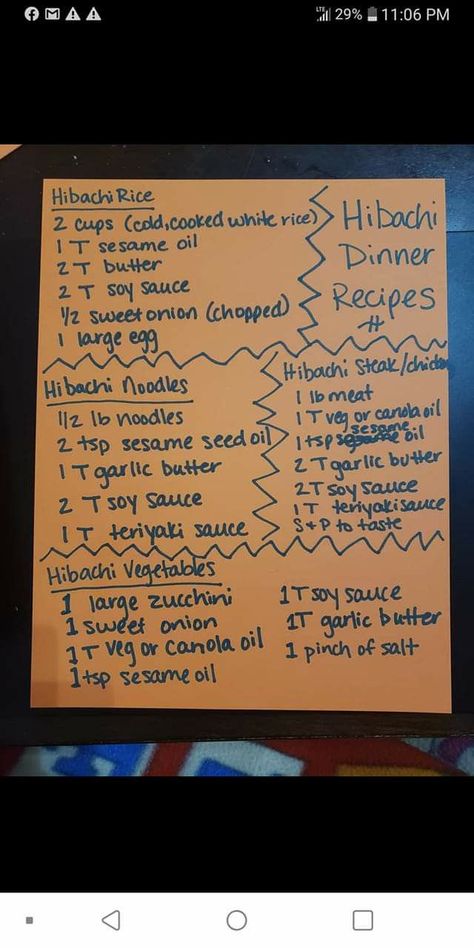 29% 11:06 PM
Hibachi Dinner Recipes
Hibachi Rice
2 cups (cold, cooked white rice)
1 T sesame oil
2 T butter
2 T soy sauce
1/2 sweet onion (chopped)
1 large egg
Hibachi Noodles
1/2 lb noodles
2 tsp sesame seed oil
1 T garlic butter
2 T soy sauce
1 T teriyaki sauce
Hibachi Steak/chicken
1 lb meat
1 T veg or canola oil
1 tsp sesame oil
2 T garlic butter
2 T soy sauce
1 T teriyaki sauce
S + P to taste
Hibachi Vegetables
1 large zucchini
1 sweet onion
1 T veg or canola oil
1 tsp sesame oil
1 T soy sauce
1T garlic butter
1 pinch of salt